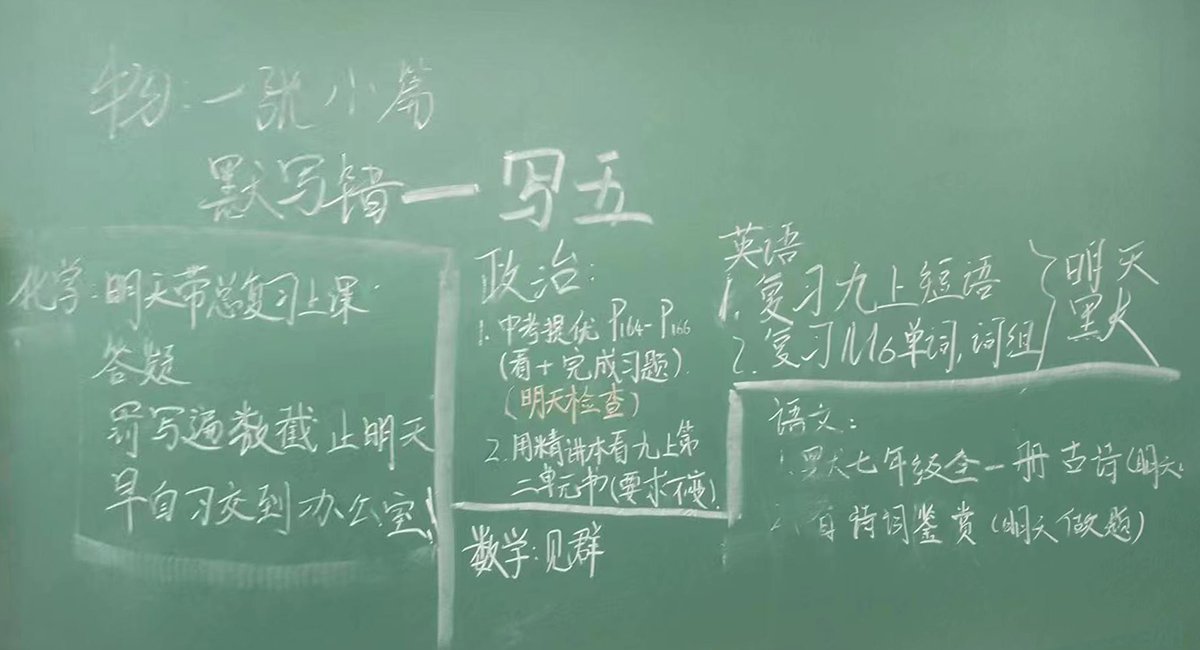 物:一张小篇
默写错一写五
化学:明天带总复习上课
答疑
罚写遍数截止明天
早自习交到办公室!
政治:
1.中考提优P164-P166
(看+完成习题)
(明天检查)
2.用精讲本看九上第
二单元书(要求不变)
数学:见群
英语
1.复习九上短语
2.复习 单词,词组
明天
默
语文:
1.默七年级全一册古诗(明天
2. 诗词鉴赏(明天做题)